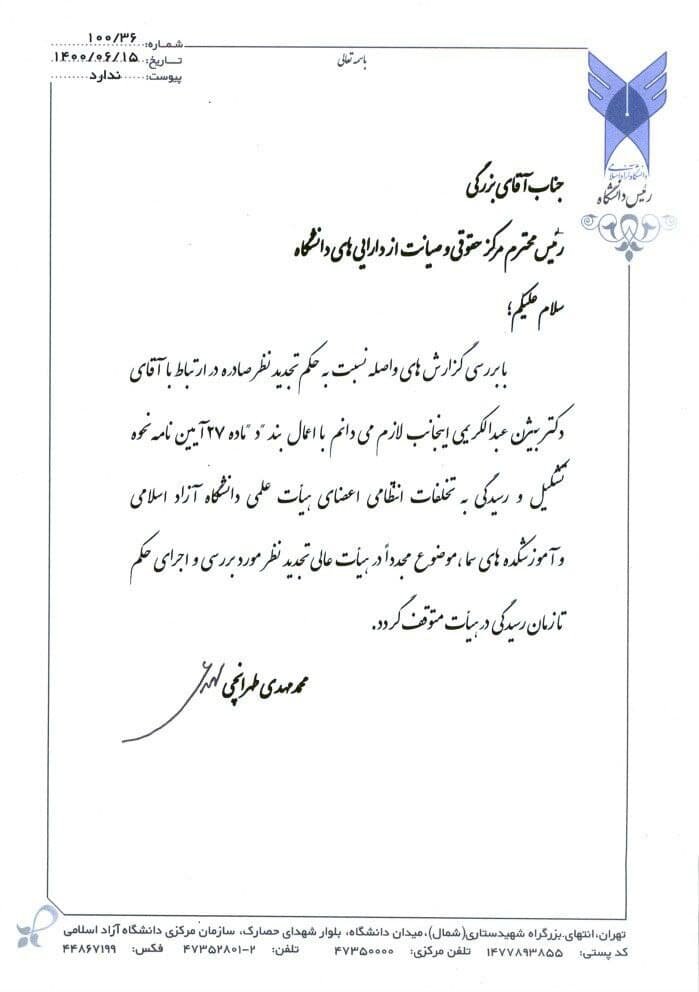 شماره: ۱۰۰/۳۶
تاریخ: ۱۴۰۰/۰۶/۱۵
پیوست: ندارد
باسمه تعالی
دانشگاه آزاد اسلامی
رئیس دانشگاه
جناب آقای بزرگی
رئیس محترم مرکز حقوقی و صیانت از دارایی های دانشگاه
سلام علیکم؛
با بررسی گزارش های واصله نسبت به حکم تجدید نظر صادره در ارتباط با آقای
دکتر بیژن عبدالکریمی اینجانب لازم می دانم با اعمال بند "د" ماده ۲۷ آیین نامه نحوه
تشکیل و رسیدگی به تخلفات انتظامی اعضای هیأت علمی دانشگاه آزاد اسلامی
و آموزشکده های سما، موضوع مجدداً در هیأت عالی تجدید نظر مورد بررسی و اجرای حکم
تا زمان رسیدگی در هیأت متوقف گردد.
محمد مهدی طهرانچی
تهران، انتهای بزرگراه شهیدستاری (شمال)، میدان دانشگاه، بلوار شهدای حصارک، سازمان مرکزی دانشگاه آزاد اسلامی
کد پستی: ۱۴۷۷۸۹۳۸۵۵ تلفن مرکزی: ۴۷۳۵۰۰۰۰ تلفن: ۲-۴۷۳۵۲۸۰۱ فکس: ۴۴۸۶۷۱۹۹